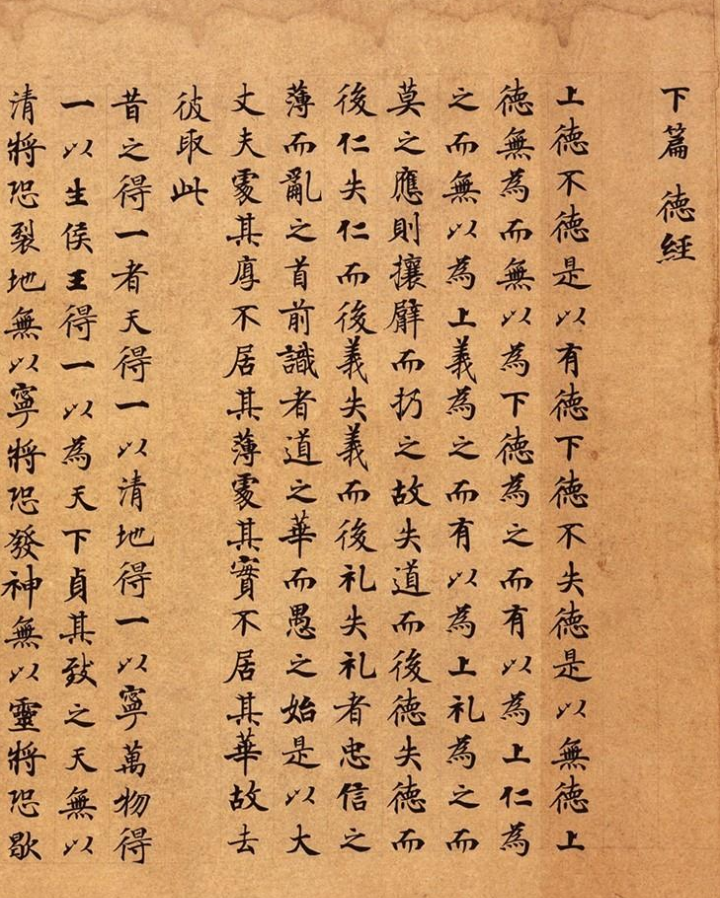 下篇 德經
上德不德是以有德下德不失德是以無德上
德無為而無以為下德為之而有以為上仁為
之而無以為上義為之而有以為上礼為之而
莫之應則攘臂而扔之故失道而後德失德而
後仁失仁而後義失義而後礼失礼者忠信之
薄而亂之首前識者道之華而愚之始是以大
丈夫處其厚不居其薄處其實不居其華故去
彼取此
昔之得一者天得一以清地得一以寧萬物得
一以生侯王得一以為天下貞其致之天無以
清將恐裂地無以寧將恐發神無以靈將恐歇